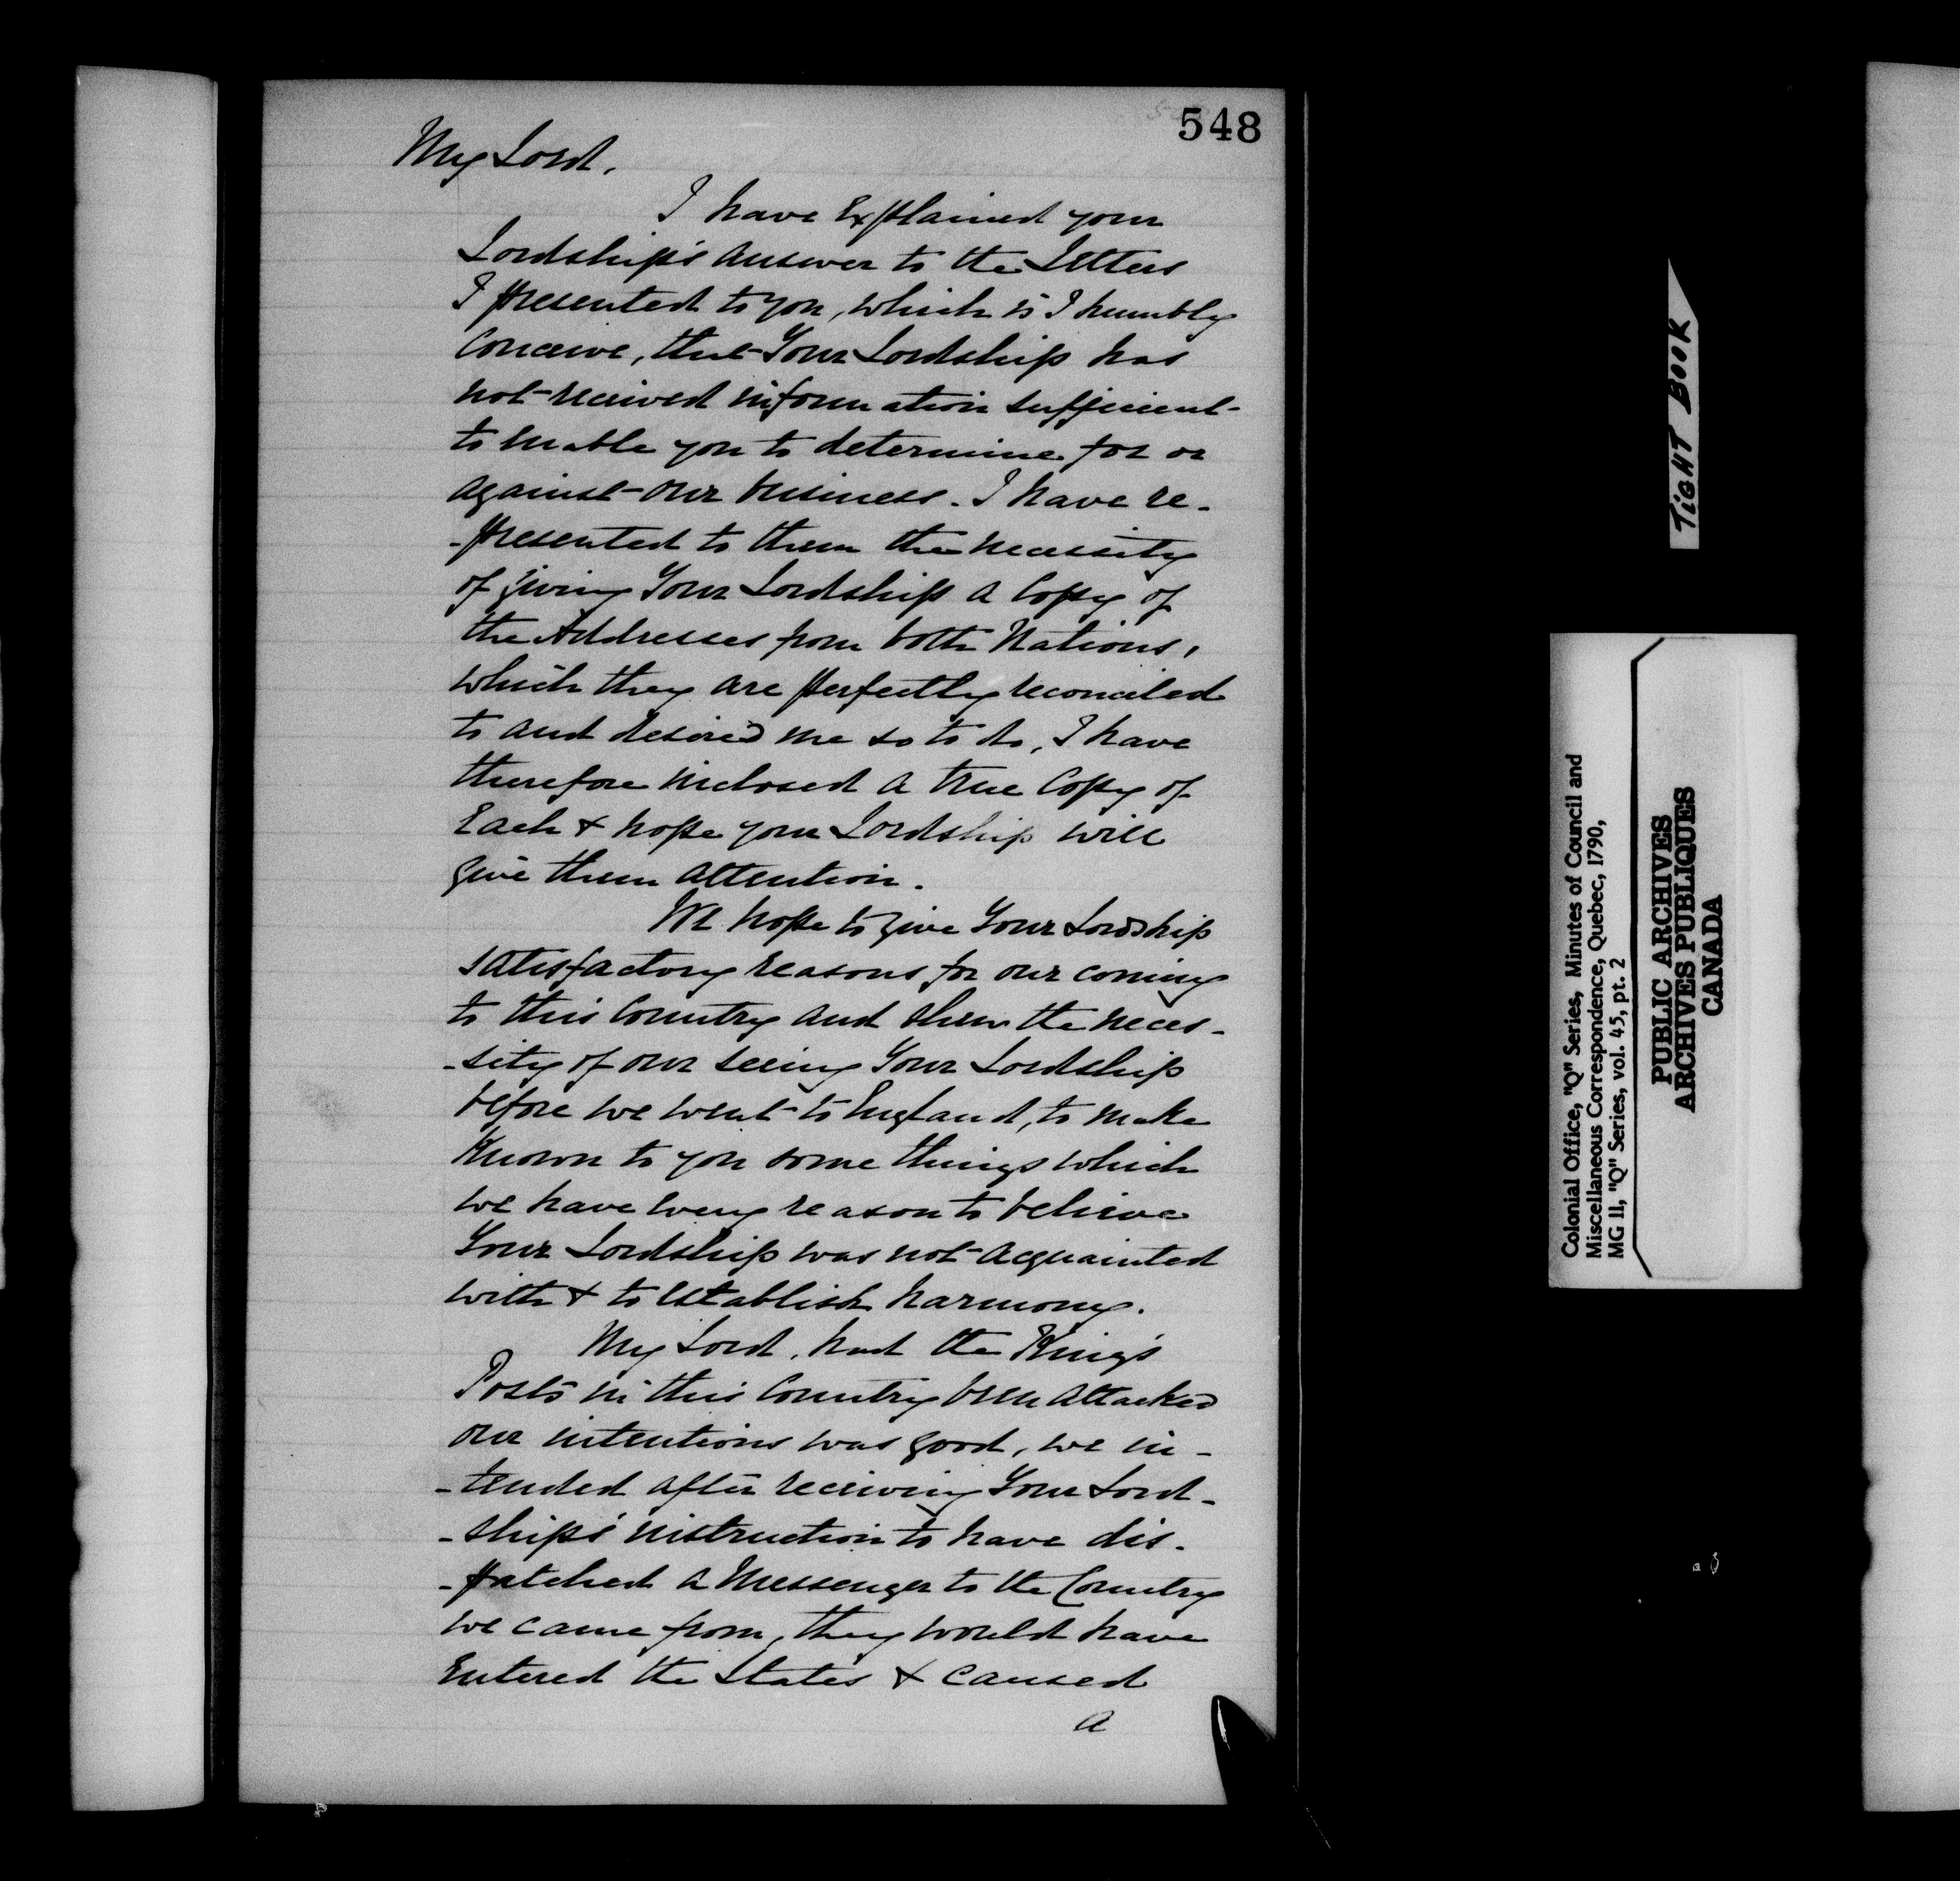 548
My Lord,
I have Explained your
Lordship's answer to the Letters
I presented to you, which is I humbly
Conceive, that Your Lordship has
not received information sufficient
to Enable you to determine for or
against our business. I have re-
-presented to them the necessity
of giving Your Lordship a Copy of
the Addresses from both Nations,
which they are perfectly reconciled
to and desired me so to do, I have
therefore inclosed a true Copy of
Each & hope your Lordship will
give them attention.
We hope to give Your Lordship
satisfactory reasons for our coming
to this Country and shew the neces-
-sity of our seeing Your Lordship
before we went to England, to make
Known to you some things which
we have every reason to believe
Your Lordship was not acquainted
with & to establish harmony.
My Lord, had the King's
Posts in this Country been attacked
our intentions was good, we in-
-tended after receiving Your Lord-
-ship's instruction to have dis-
-patched a Messenger to the Country
we came from, they would have
Entered the States & caused
a
TIGHT BOOK
Colonial Office, "Q" Series, Minutes of Council and
Miscellaneous Correspondence, Quebec, 1790,
MG 11, "Q" Series, vol. 45, pt. 2
PUBLIC ARCHIVES
ARCHIVES PUBLIQUES
CANADA